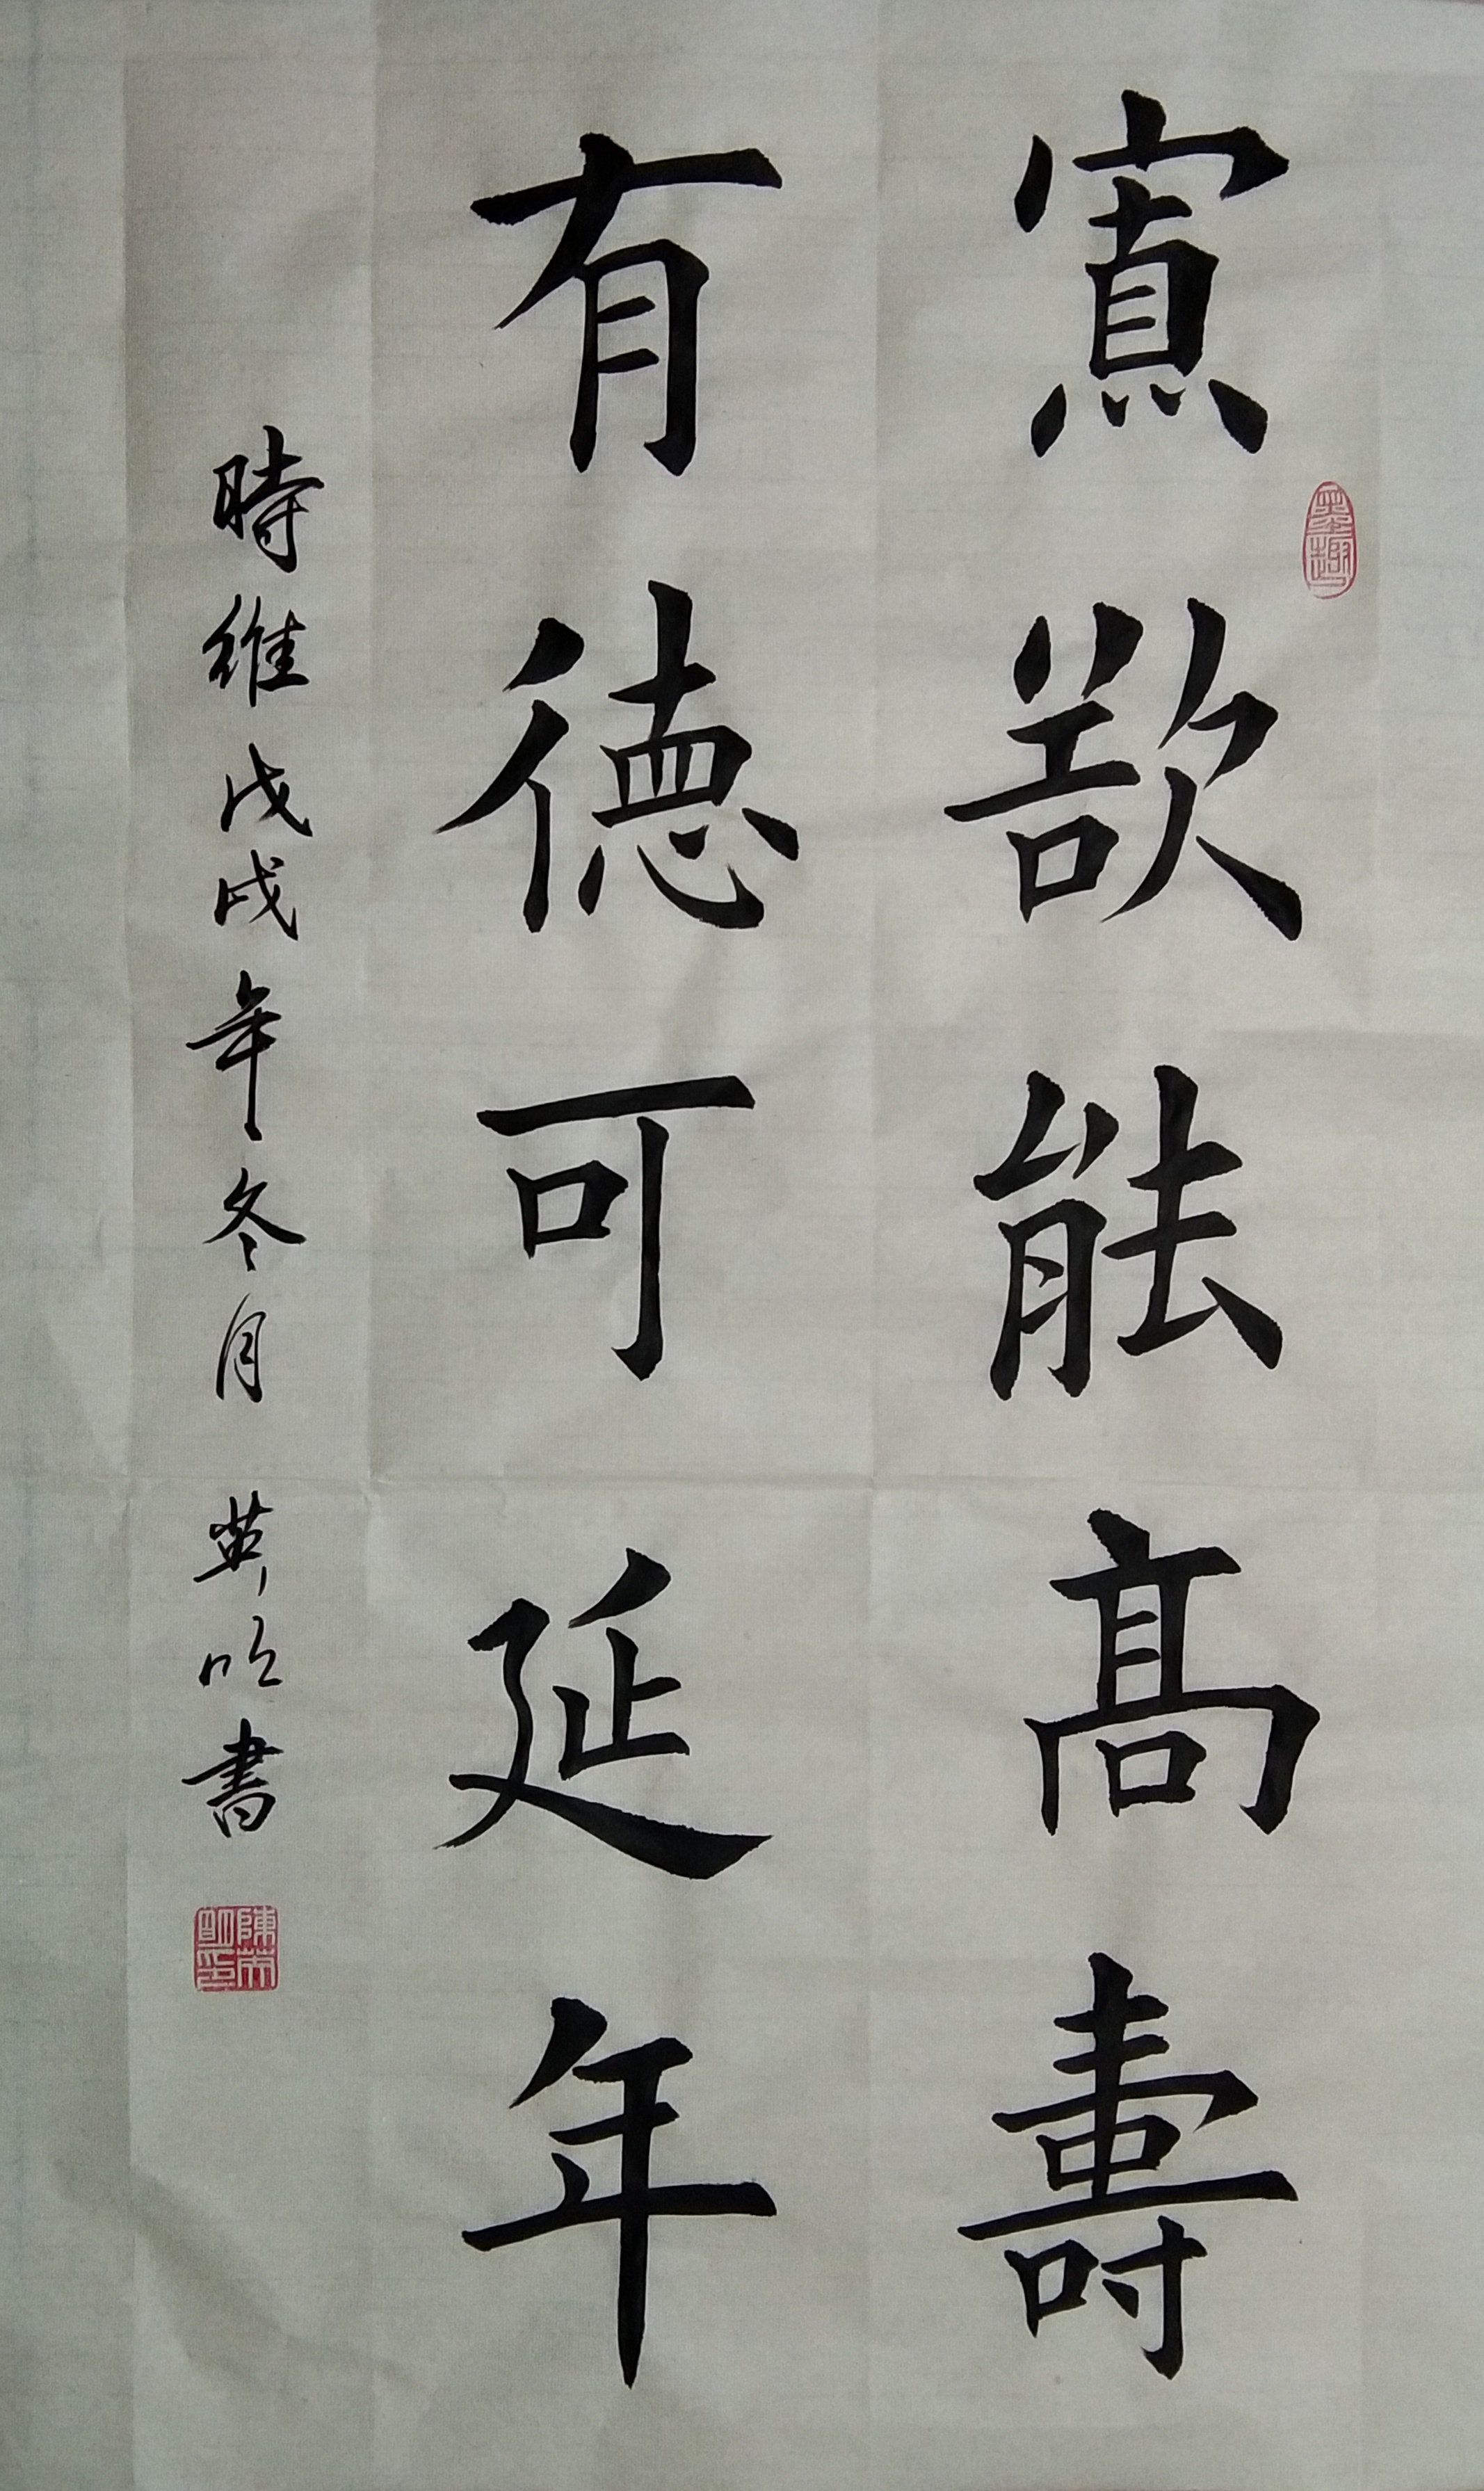 寡欲能高壽
有德可延年
時維戊戌年冬月 英明書
墨趣
陳英明印